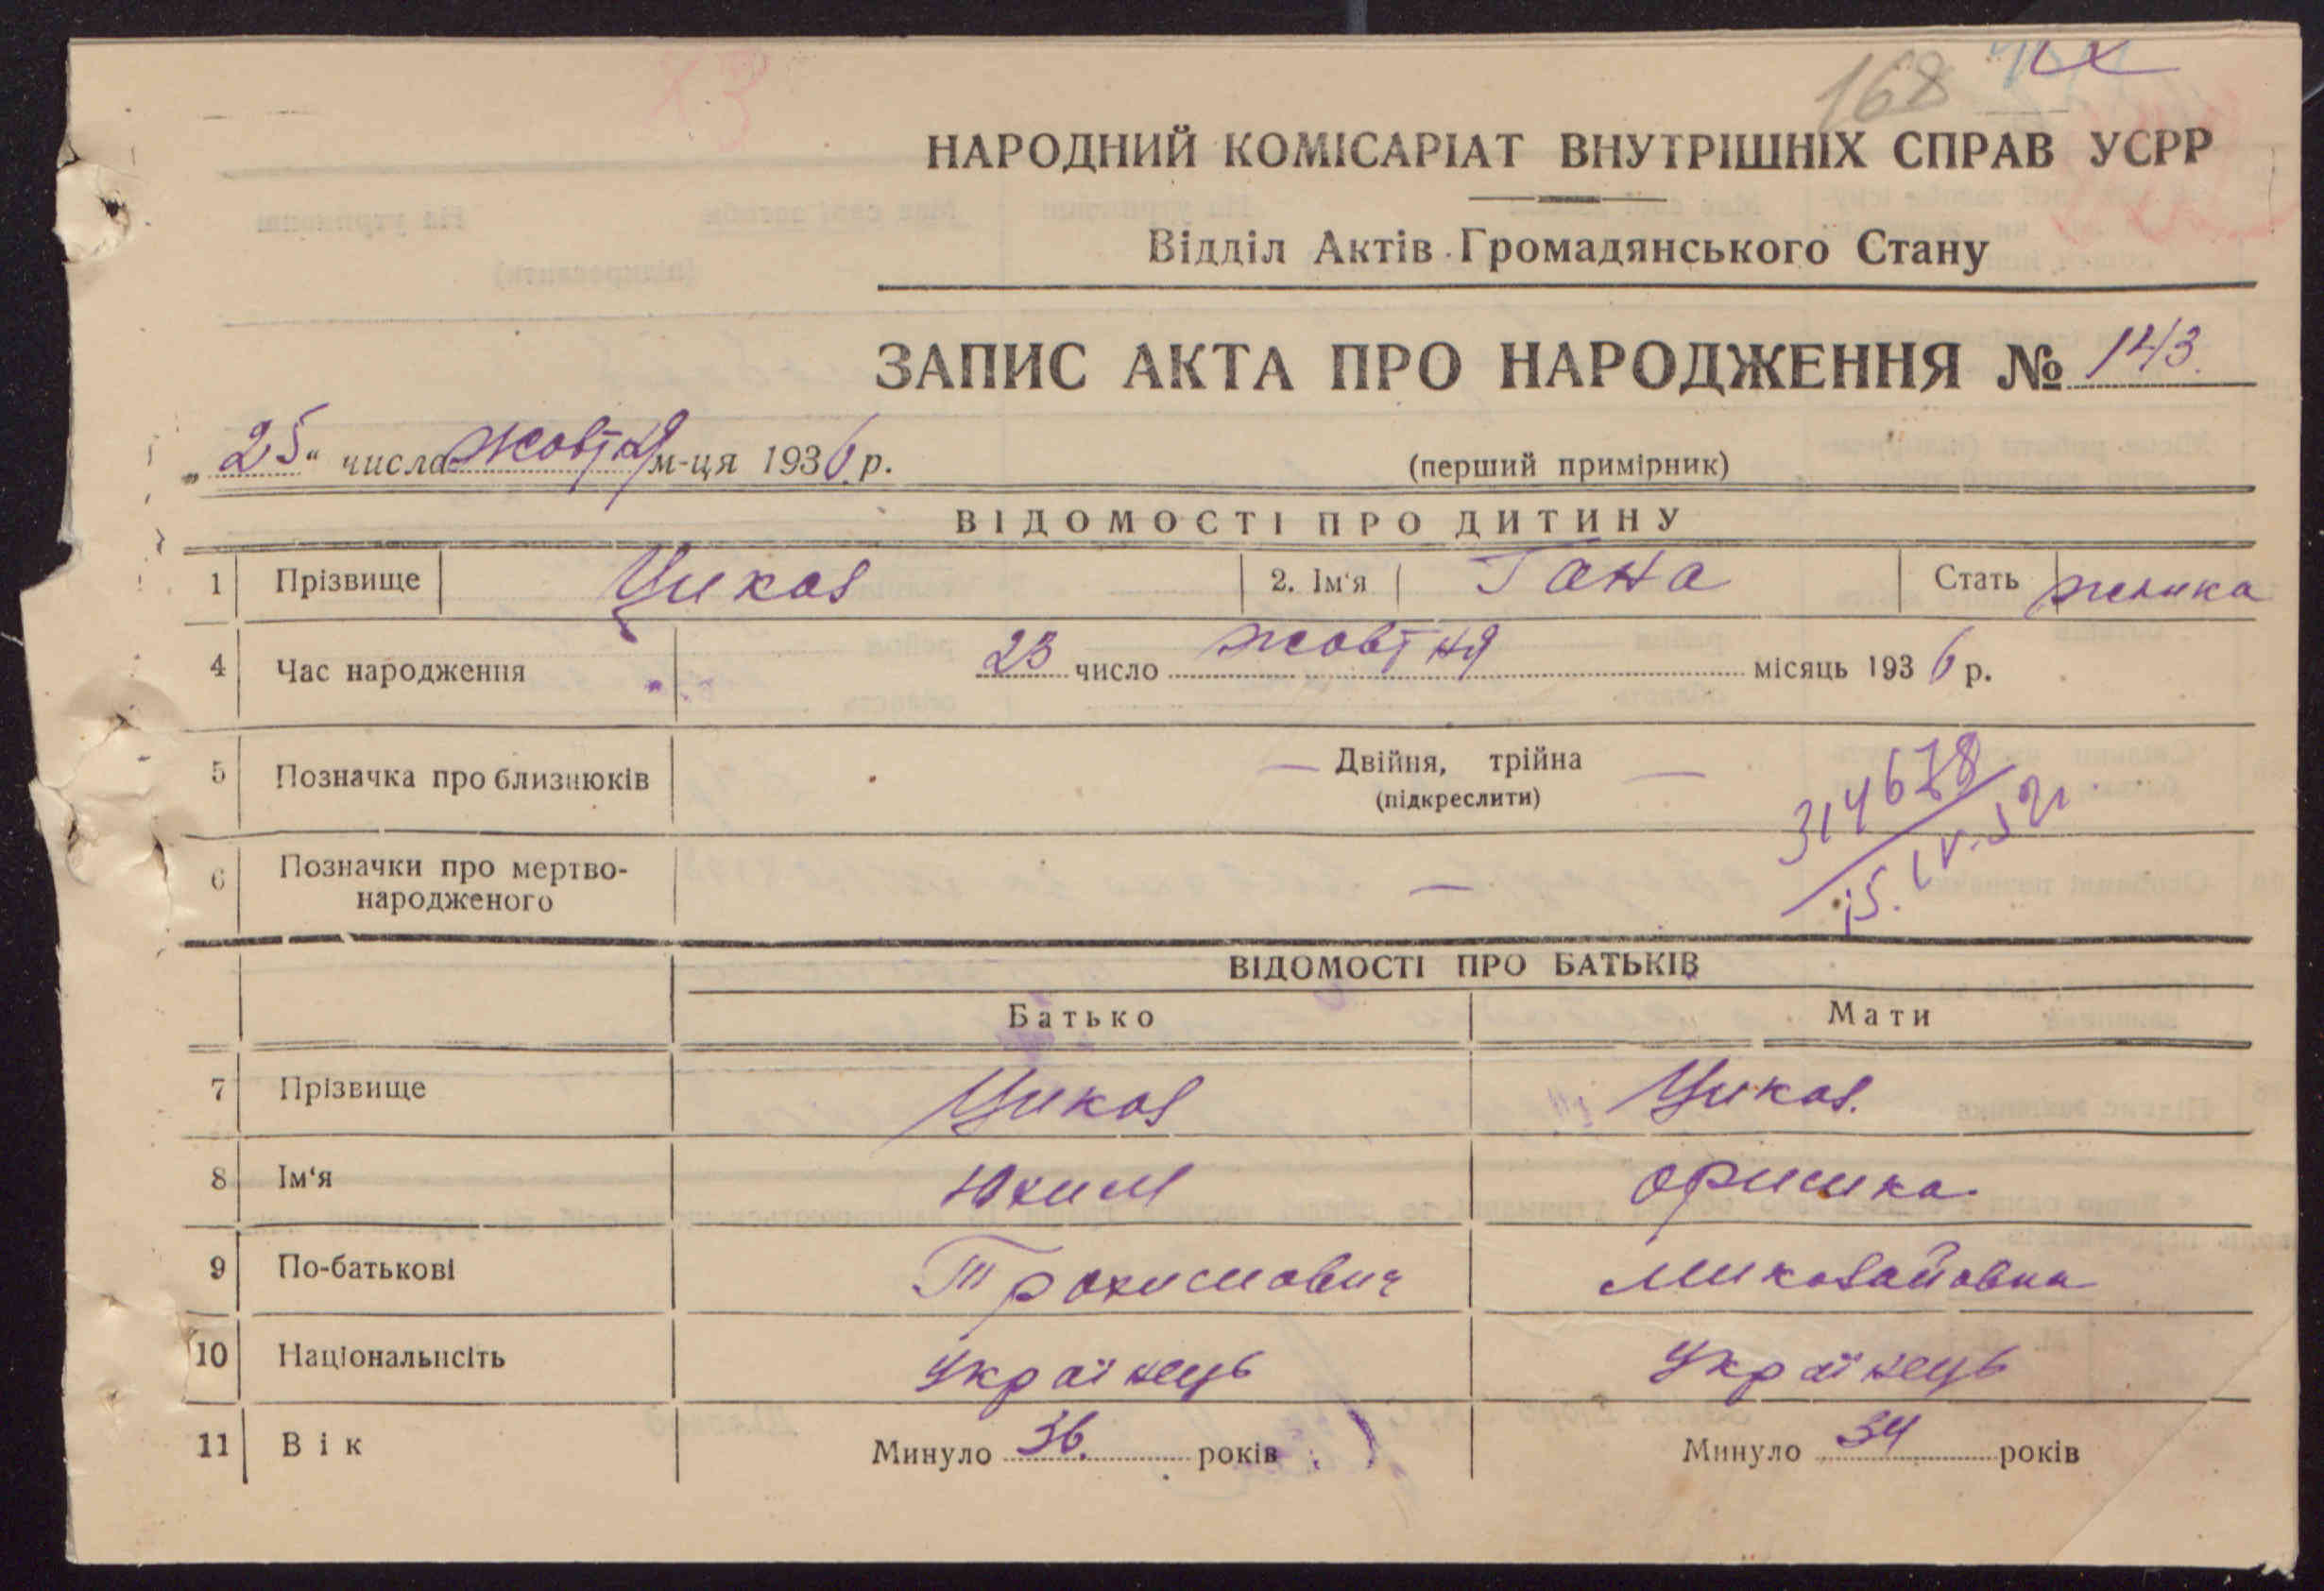 168
НАРОДНИЙ КОМІСАРІАТ ВНУТРІШНІХ СПРАВ УСРР
Відділ Актів Громадянського Стану
ЗАПИС АКТА ПРО НАРОДЖЕННЯ № 143.
„25“ числа жовтня м-ця 1936 р.
(перший примірник)
ВІДОМОСТІ ПРО ДИТИНУ
1 Прізвище Цикал 2. Ім'я Гана Стать жінка
4 Час народження 23 число жовтня місяць 1936 р.
5 Позначка про близнюків — Двійня, трійна —
(підкреслити)
314678
15.IV.52г
6 Позначки про мертво-
народженого —
ВІДОМОСТІ ПРО БАТЬКІВ
Батько Мати
7 Прізвище Цикал Цикал.
8 Ім'я Юхим Оришка
9 По-батькові Трохимович Миколайовна
10 Національність Українець Українець
11 Вік Минуло 36. років Минуло 34 років